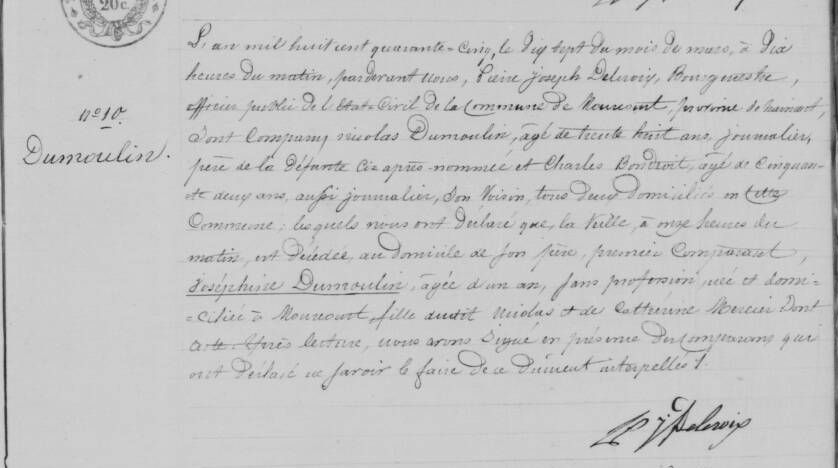 20c.
L'an mil huit cent quarante-cinq, le Dix sept du mois de mars, à Dix
heures du matin, pardevant nous, Pierre Joseph Delcroix, Bourgmestre,
officier public de l'Etat-Civil de la Commune de Mourcourt, province de hainaut,
sont Comparus nicolas Dumoulin, âgé de trente huit ans, journalier,
père de la Défunte Ci-après-nommée et Charles Bondroit, âgé de Cinquan-
-te deux ans, aussi journalier, son Voisin, tous deux Domiciliés en Cette
Commune; lesquels nous ont Déclaré que, la Veille, à onze heures du
matin, est Décédée, au Domicile de son père, premier Comparant,
Joséphine Dumoulin, âgée d'un an, sans profession, née et domi-
-ciliée à Mourcourt, fille dudit Nicolas et de Catherine Mercier Dont
acte. Après lecture, nous avons Signé en présence des Comparans qui
ont Déclaré ne savoir le faire de ce Dûment interpellés /.
n.o 10.
Dumoulin.
P J Delcroix